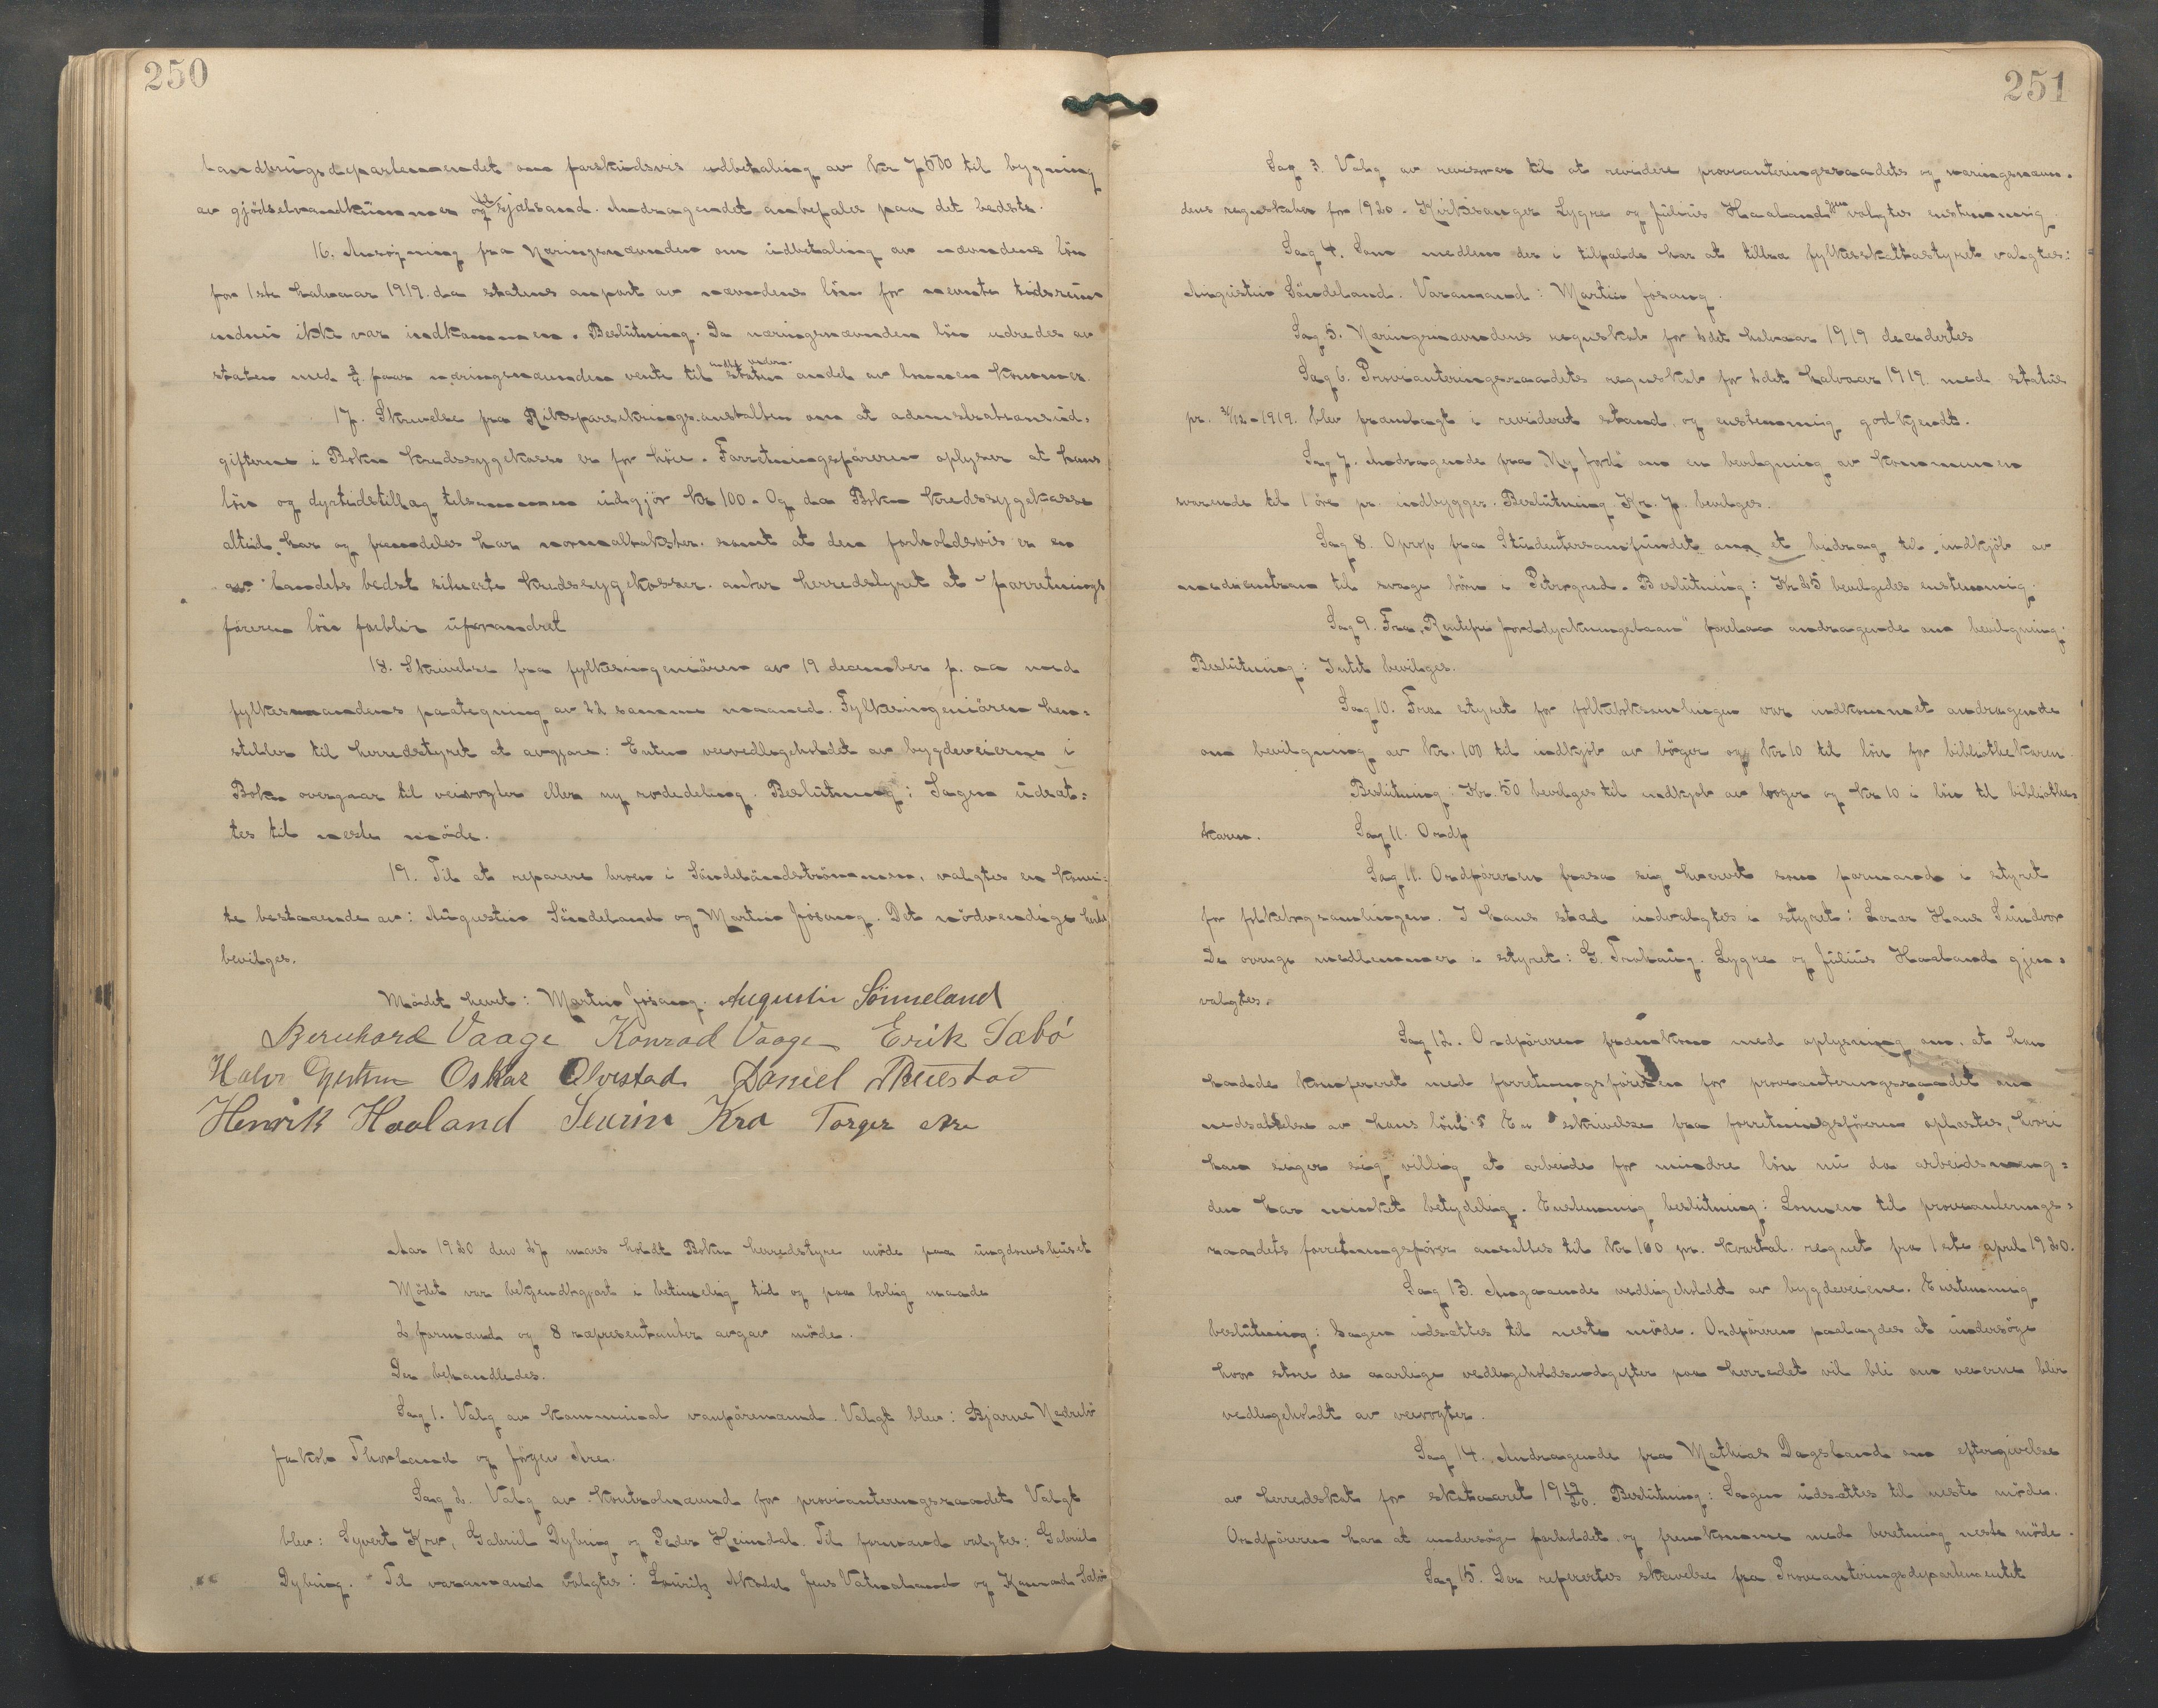 250
landbrugsdepartementet om forskudsvis udbetaling av kr 7500 til bygning
av gjödselvandkummer og til sjølsand. Andragendet anbefales paa det bedste.
16. Ansøgning fra Næringsnævnden om udbetaling av nævndens lön
for 1ste halvaar 1919. da statens anpart av nævndens lön for nævnte tidsrum
endnu ikke var indkommen. Beslutning. Da næringsnævnden lön udredes av
staten med faar næringsnævnden vente til statens andel av lønnen kommer.
17. Skrivelse fra Riksforsikringsanstalten om at adminstrationsud-
gifterne i Bokn Kredssygekasse er for höie. Forretningsföreren oplyser at hans
lön og dyrtidstillag tilsammen udgjör kr 100. Og da Bokn Kredssygekasse
altid har og fremdeles har normaltakster. samt at den forholdsvis er en
av landets bedst situerte kredssygekasser. antar herredstyret at forretnings
föreren lön forblir uforandret
18. Skrivelse fra fylkesingeniören av 19 december f. aa med
fylkesmandens paategning av 22 samme maaned. Fylkesingeniören hen-
stiller til herredstyret at avgjøre: Enten veivedlegeholdet av bygdeveierne i
Bokn overgaar til veivogter eller ny rodedeling. Beslutning: Sagen udsæt-
tes til neste möde.
19. Til at reparere broen i Söndelandströmmen, valgtes en komi-
te bestaaende av: Augustin Söndeland og Martin Jøsang. Det nödvendige
bevilges.
Mödet hevet: Martin Jøsang. Augustin Sönneland
Bernhard Vaage Konrad Vaage Erik Sæbó
Halvr Oskar Olvestad Daniel Alvestad
Henrik Haaland Sevrin Kro Torger Are
Aar 1920 den 27 mars holdt Bokn herredstyre möde paa ungdomshuset
Mödet var bekjendtgjort i betimelig tid og paa lovlig maade
2 formænd og 8 representanter avgav möde.
Der behandledes.
Sag 1. Valg av kommunal vanføremænd. Valgt blev: Bjarne Nedrebö
Jakob Thorland og Jörgen Are.
Sag 2. Valg av Kontrolnævnd for provianteringsraadet Valgt
blev: Syvert Kro, Gabriel Dybing og Peder Heimdal. Til formand valgtes: Gabriel
Dybing. Til varamænd valgtes: Lauritz Jens Vatnaland og Konrad Sæbö
251
Sag 3. Valg av revisorer til at revidere provianteringsraadets og næringsnævn-
dens regnskaber for 1920. Kirkesanger Lygre og Julius Haaland gjenvalgtes enstemmig.
Sag 4. Som medlem der i tilfælde har at tiltræ fylkesskattastyret valgtes:
Augustin Söndeland. Varamand: Martin Jøsang.
Sag 5. Næringsnævndens regnskab for 2det halvaar 1919 decidertes
Sag 6. Provianteringsraadets regnskab for 2det halvaar 1919. med status
pr. 31/12-1919. blev framlagt i revideret stand, og enstemmig godkjendt.
Sag 7. Andragende fra "Ny Jord" om en bevilgning av kommunen
svarende til 1 öre pr. indbygger. Beslutning Kr. 7. bevilges.
Sag 8. Oprop fra Studentersamfundet om et bidrag til indkjöb av
medisintran til svage börn i Petrograd. Beslutning: Kr 25 bevilgedes enstemmig.
Sag 9. Fra "Rentefri Jorddyrkningslaan" forelaa andragende om bevilgning.
Beslutning: Intet bevilges.
Sag 10. Fra styret for folkeboksamlingen var indkommet andragende
om bevilgning av kr. 100 til indkjöb av böger og kr 10 til lön for bibliothekaren.
Beslutning: Kr. 50 bevilges til indkjøb av böger og kr 10 i lön til bibliothe-
karen. Sag 11. Ordf
Sag 11. Ordföreren frasa sig hvervet som formand i styret
for folkebogsamlingen. I hans sted indvalgtes i styret: Lærer Hans Sundvor
De övrige medlemmer i styret: G. Lygre og Julius Haaland gjen-
valgtes.
Sag 12. Ordföreren fremkom med oplysning om, at han
hadde konfereret med forretningsföreren for provianteringsraadet om
nedsættelse av hans lön. En skrivelse fra forretningsföreren oplæstes, hvori
han siger sig villig at arbeide for mindre lön nu da arbeidsmæng-
den har minket betydelig. Enstemmig beslutning: Lønnen til provianterings-
raadets forretningsfører ansættes til kr 100 pr. kvartal. regnet fra 1ste april 1920.
Sag 13. Angaaende vedligeholdet av bygdeveiene. Enstemmig
beslutning: Sagen udsættes til neste möde. Ordföreren paalagdes at undersöge
hvor store de aarlige vedlegeholdsudgifter paa herredet vil bli om veierne blir
vedlegeholdt av veivogter.
Sag 14. Andragende fra Mathias Dagsland om eftergivelse
av herredskat for skataaret 1919/20. Beslutning: Sagen udsættes til neste möde.
Ordföreren har at undersöge forholdet. og fremkomme med beretning neste möde.
Sag 15. Der referertes skrivelse fra Provianteringsdepartementet